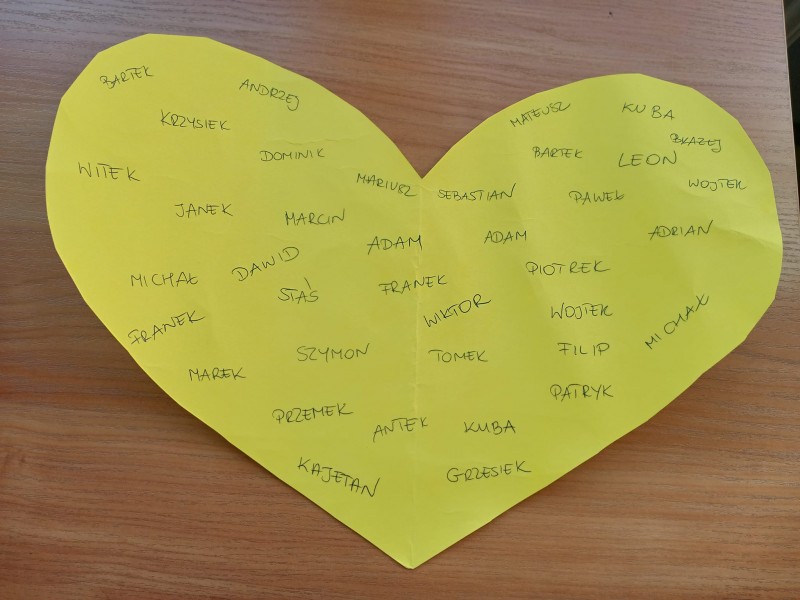 BARTEK
ANDRZEJ
MATEUSZ
KUBA
KRZYSIEK
BŁAŻEJ
DOMINIK
BARTEK
LEON
WITEK
MARIUSZ
SEBASTIAN
PAWEŁ
WOJTEK
JANEK
MARCIN
ADAM
ADAM
ADRIAN
MICHAŁ
DAWID
STAŚ
FRANEK
PIOTREK
FRANEK
WIKTOR
WOJTEK
MICHAŁ
MAREK
SZYMON
TOMEK
FILIP
PRZEMEK
PATRYK
ANTEK
KUBA
KAJETAN
GRZESIEK